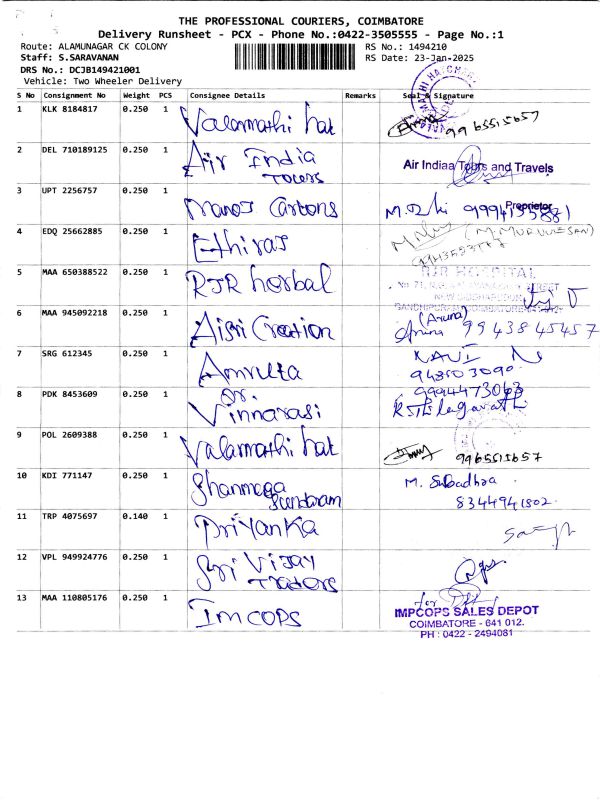 THE PROFESSIONAL COURIERS, COIMBATORE
Delivery Runsheet - PCX - Phone No.:0422-3505555 - Page No.:1
Route: ALAMUNAGAR CK COLONY
RS No.: 1494210
Staff: S.SARAVANAN
RS Date: 23-Jan-2025
DRS No.: DCJB149421001
Vehicle: Two Wheeler Delivery
S No Consignment No Weight PCS Consignee Details Remarks Seal & Signature
1 KLK 8184817 0.250 1 Valarmathi hat 9965515657
2 DEL 710189125 0.250 1 Air India Tours
Air Indiaa Tours and Travels
Proprietor
3 UPT 2256757 0.250 1 Manos Cartons
4 EDQ 25662885 0.250 1 Ethiraj (M. MURUGESAN)
5 MAA 650388522 0.250 1 RJR herbal
RJR HOSPITAL
6 MAA 945092218 0.250 1 Aisri Creation (Aruna) 9943845457
7 SRG 612345 0.250 1 Amrutta
8 PDK 8453609 0.250 1 Dr. Vinnarasi
9 POL 2609388 0.250 1 Valarmathi hat 9965515657
10 KDI 771147 0.250 1 Shanmuga Sundaram M. Subadhra
8344941802
11 TRP 4075697 0.140 1 Priyanka
12 VPL 949924776 0.250 1 Sri Vijay Traders
13 MAA 110805176 0.250 1 Imcops
IMPCOPS SALES DEPOT
COIMBATORE - 641 012.
PH : 0422 - 2494081